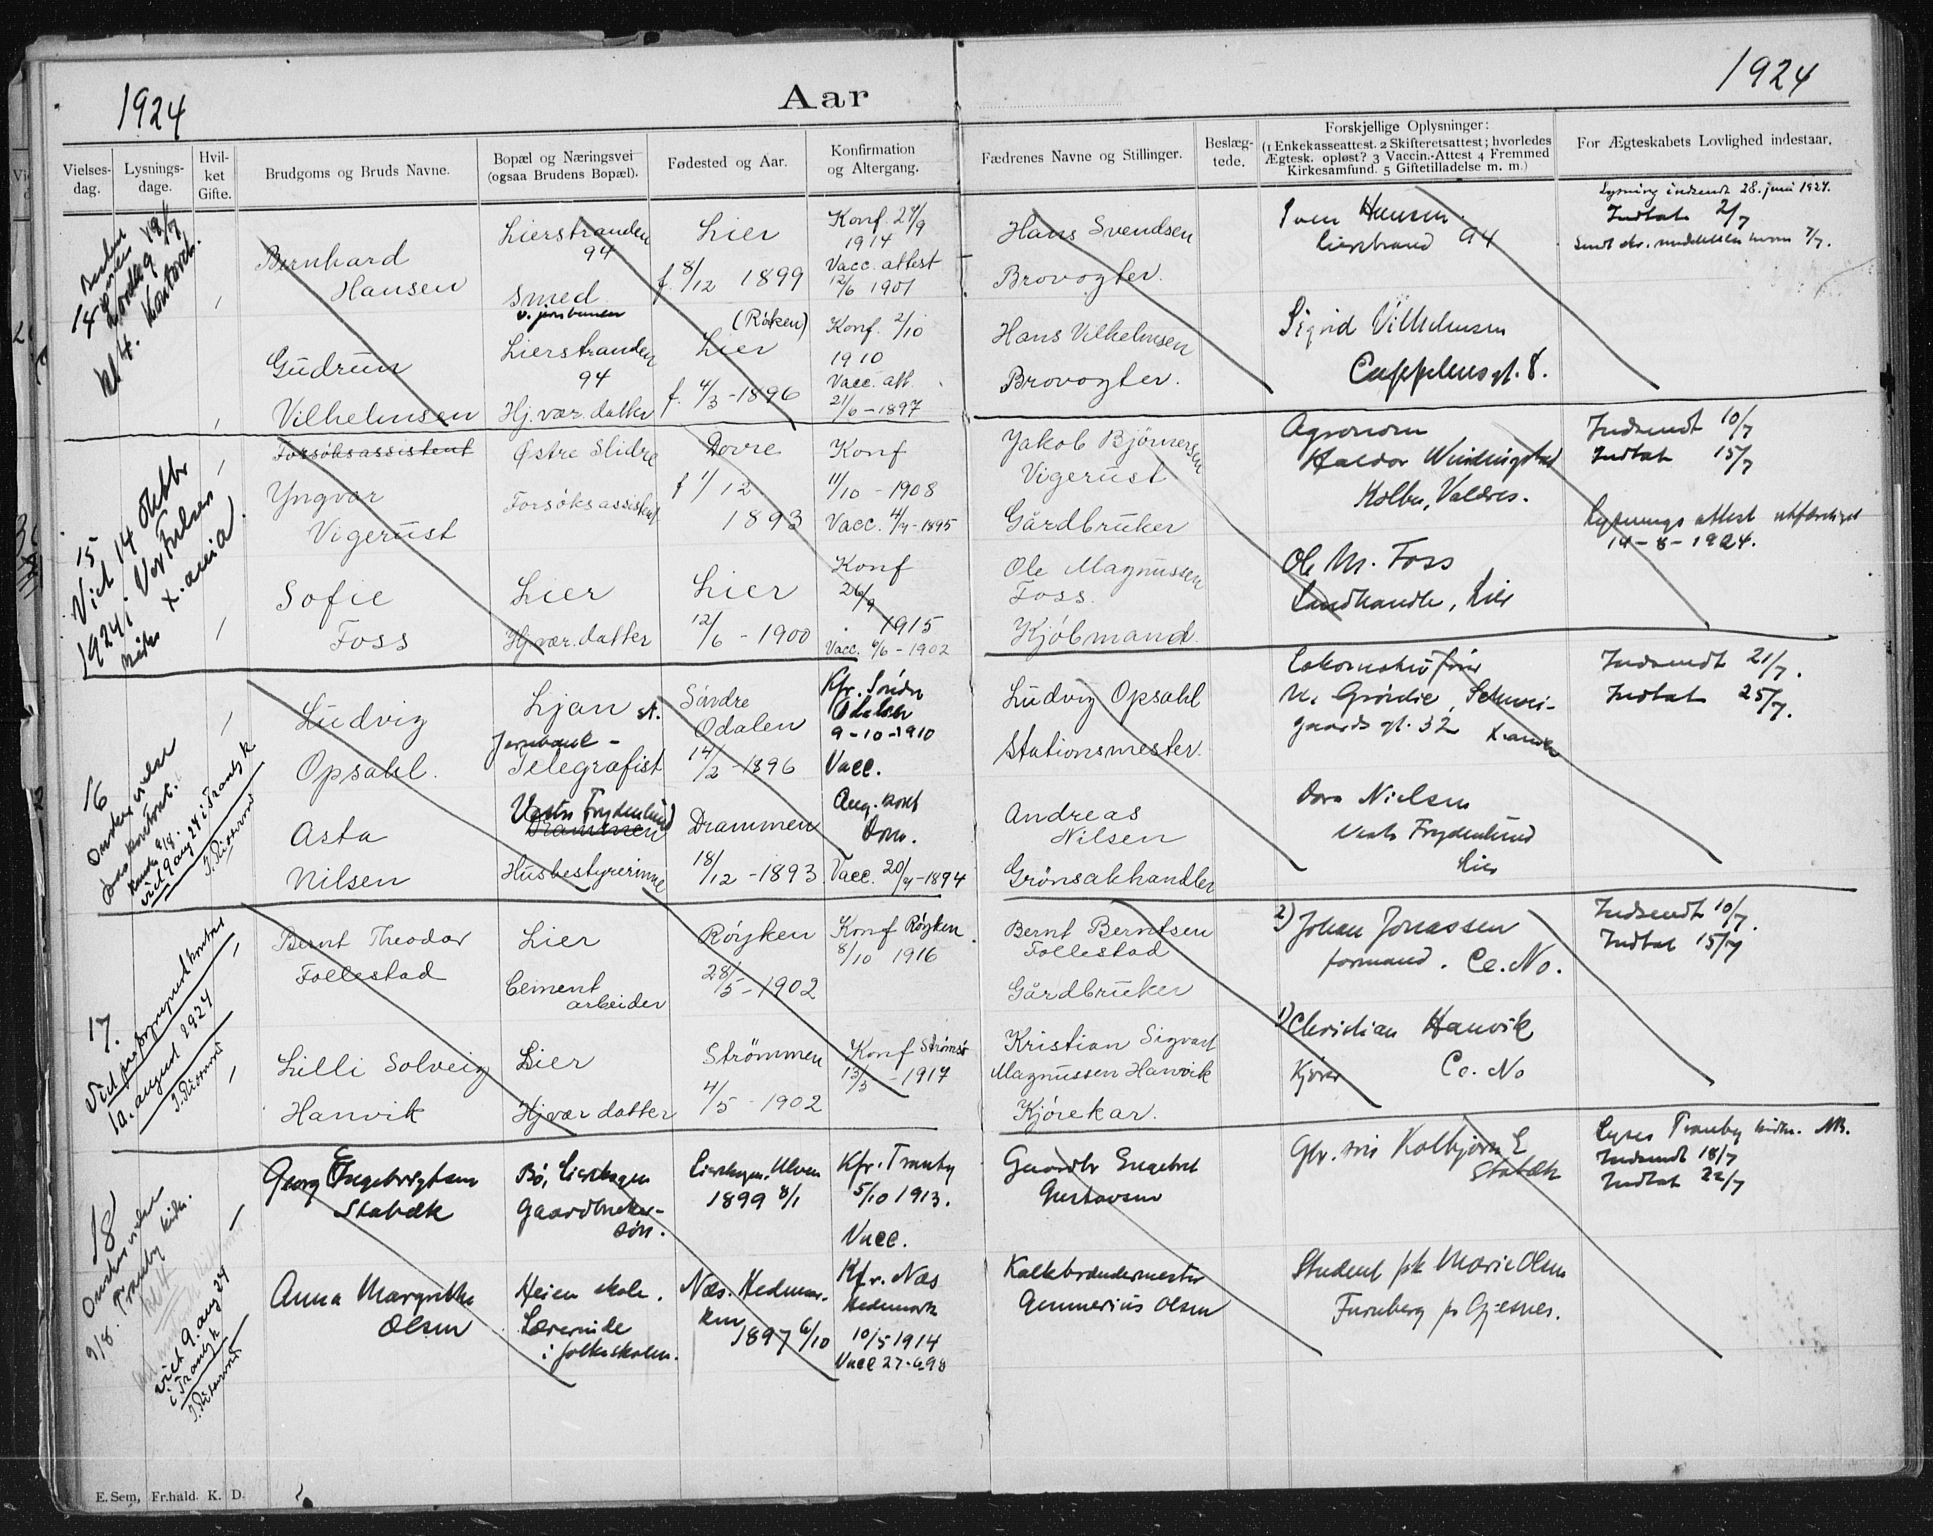 1924
Aar
1924
Vielses-
dag.
Lysnings-
dage.
Hvil-
ket
Gifte.
Brudgoms og Bruds Navne.
Bopæl og Næringsvei
(ogsaa Brudens Bopæl).
Fødested og Aar.
Konfirmation
og Altergang.
Fædrenes Navne og Stillinger.
Beslæg-
tede.
Forskjellige Oplysninger:
(1 Enkekasseattest. 2 Skifteretsattest; hvorledes
Ægtesk. opløst? 3 Vaccin.-Attest 4 Fremmed
Kirkesamfund. 5 Giftetilladelse m. m.)
For Ægteskabets Lovlighed indestaar.
14
kl 4. Kontoret.
Bernhard
Hansen
Lierstranden
94
Smed
Lier
f. 8/12 1899
Konf. 27/9
1914
Vacc. attest
12/6 1901
Hans Svendsen
Brovogter.
Sven Hansen.
Lierstrand 94
Lysning indsendt 28. juni 1924.
Indtat 2/7
Gudrun
Vilhelmsen
Lierstranden
94
Hj.vær. datter
(Røken)
Lier
f. 4/3 - 1896
Konf. 2/10
1910
Vacc. att.
21/6 - 1897
Hans Vilhelmsen
Brovogter.
Sigrid Vilhelmsen
Cappelensgt. 8.
15
Viet 14 oktbr
1924 i Vor Frelser
Forsøksassistent
Yngvar
Vigerust
Østre Slidre
Forsøksassistent
Dovre
f 1/12
1893
Konf
11/10 - 1908
Vacc. 4/7 - 1895
Jakob Bjørnersen
Vigerust
Gårdbruker
Agronom
Haldor Windingstad
Kolbu, Valdres.
Indsendt 10/7
Indtat 15/7
Lysnings attest utfærdiget
14 - 8 - 1924.
Sofie
Foss
Lier
Hj.vær. datter
Lier
12/6 - 1900
Konf
26/9
1915
Vacc. 6/6 - 1902
Ole Magnussen
Foss.
Kjøbmand
Ole M. Foss
Landhandler, Lier
16
Ønskes viet
paa kontoret.
viet 9 aug 24 i Tranby k
Ludvig
Opsahl.
Ljan st.
Jernbane-
Telegrafist
Søndre
Odalen
14/2 - 1896
Kfr. Søndre
Odalen
9-10-1910
Vacc.
Ludvig Opsahl
Stationsmester.
Lokomotivfører
Kr. Grøndie, Schwei-
gaards gt. 32
Indsendt 21/7.
Indtat 25/7.
Asta
Nilsen
Vestre Frydenlund
Drammen
Husbestyrerinne
Drammen
18/12 - 1893
Vacc. 20/4 - 1894
Andreas
Nilsen
Grønsakhandler
Dora Nielsen
Vestr Frydenlund
Lier
17.
Viet paa sogneprestkontoret
10. august 1924
Bernt Theodor
Follestad
Lier
Cement
arbeider
Røyken
28/5 - 1902
Konf Røyken
8/10 1916
Bernt Berntsen
Follestad
Gårdbruker
2) Johan Jonassen
formand. Ce. No.
Indsendt 10/7.
Indtat 15/7
Lilli Solveig
Hanvik
Lier
Hj.vær datter
Strømmen
4/5 - 1902
Konf Strømsø
13/5 - 1917
Kristian Sigvart
Magnussen Hanvik
Kjørekar.
1) Christian Hanvik
Kjører Ce. No
18
Ønskes viet
9/8. Tranby kirke.
viet 9 aug 24
i Tranby k
Georg Engebrigtsen
Stabæk
Bø, Lierskogen
Gaardbruker-
søn.
Lierskogen. Ulven
1899 8/1
Kfr. Tranby
5/10 1913.
Vacc.
Gaardbr Engebret
Gustavsen
Gbr. søn Kolbjørn E
Stabæk
Lyses Tranby kirke. NB.
Indsendt 18/7
Indtat 22/7
Anna Margrethe
Olsen
Heien skole.
Lærerinde
i folkeskolen.
Næs. Hedmar-
ken
1897 6/10
Kfr. Næs
Hedemark
10/5 1914
Vacc 27-6 98
Kalkbrændermester
Gunnerius Olsen
Student frk Marie Olsen
Furnberg pr Gjesnes.
E. Sem, Fr.hald. K. D.